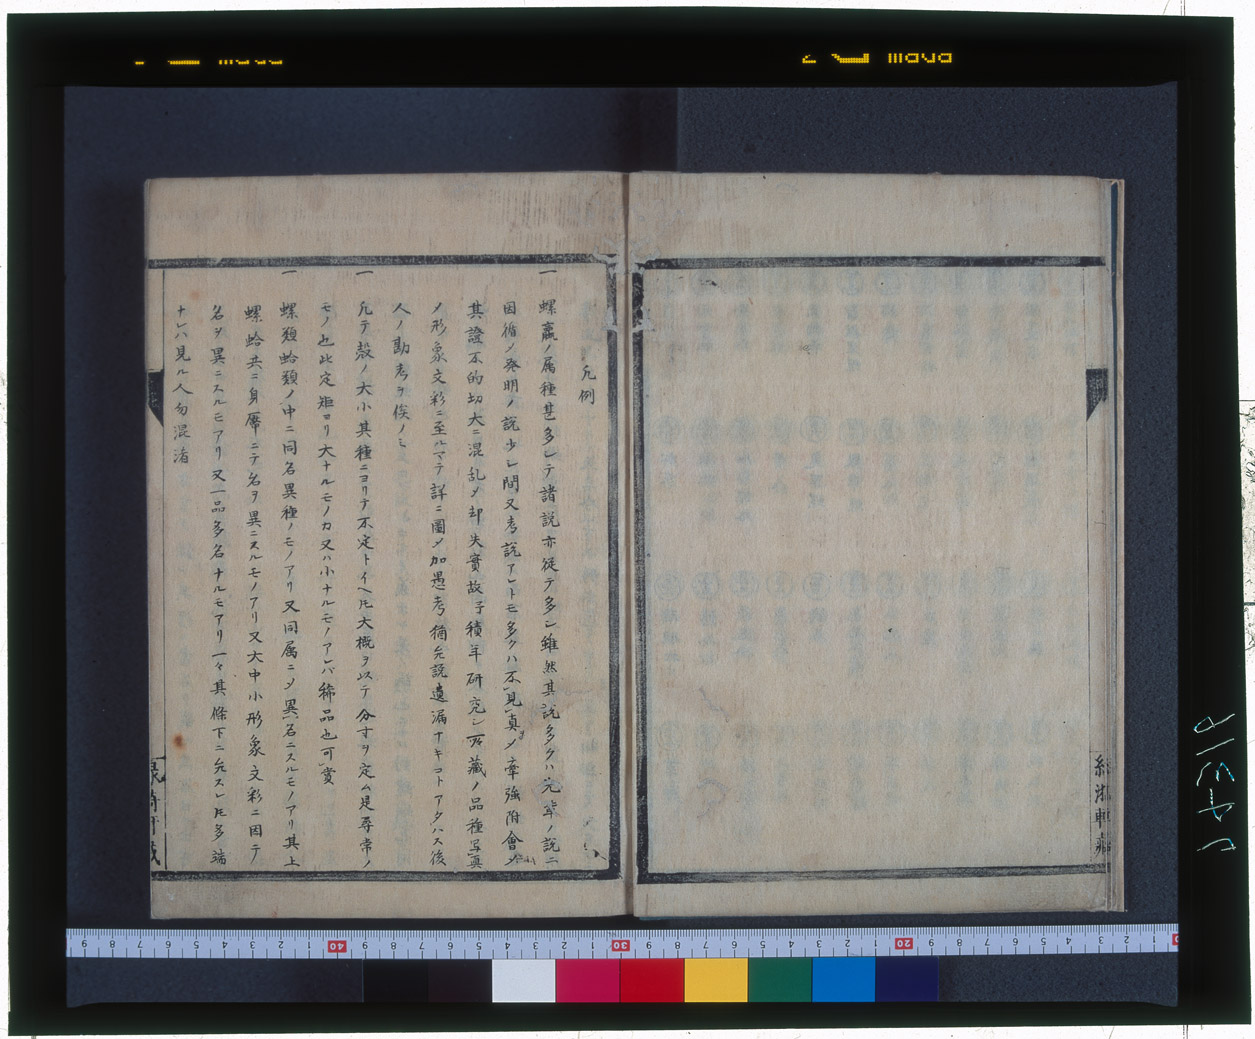 凡例
一 螺蠃ノ属種甚多シテ諸説亦従テ多シ雖然其説多クハ先輩ノ説ニ
因循〆発明ノ説少シ間又考説アレトモ多クハ不見真〆牽強附會〆
其證不的切大ニ混乱〆却失實故予積年研究シ所蔵ノ品種写真
〆形象文彩ニ至ルマテ詳ニ圖〆加愚考猶先説遺漏ナキコトアタハス後
人ノ勘考ヲ俟ノミ
一 凡テ殻ノ大小其種ニヨリテ不定トイヘ𪜈大概ヲ以テ分寸ヲ定ム是尋常ノ
モノ也此定矩ヨリ大ナルモノカ又ハ小ナルモノアレバ稀品也可賞
一 螺類蛤類ノ中ニ同名異種ノモノアリ又同属ニ〆異名ニスルモノアリ其上
螺蛤共ニ身厴ニテ名ヲ異ニスルモノアリ又大中小形象文彩ニ因テ
名ヲ異ニスルモアリ又一品多名ナルモアリ一々其條下ニ弁スレ𪜈多端
ナレハ見ル人勿混淆